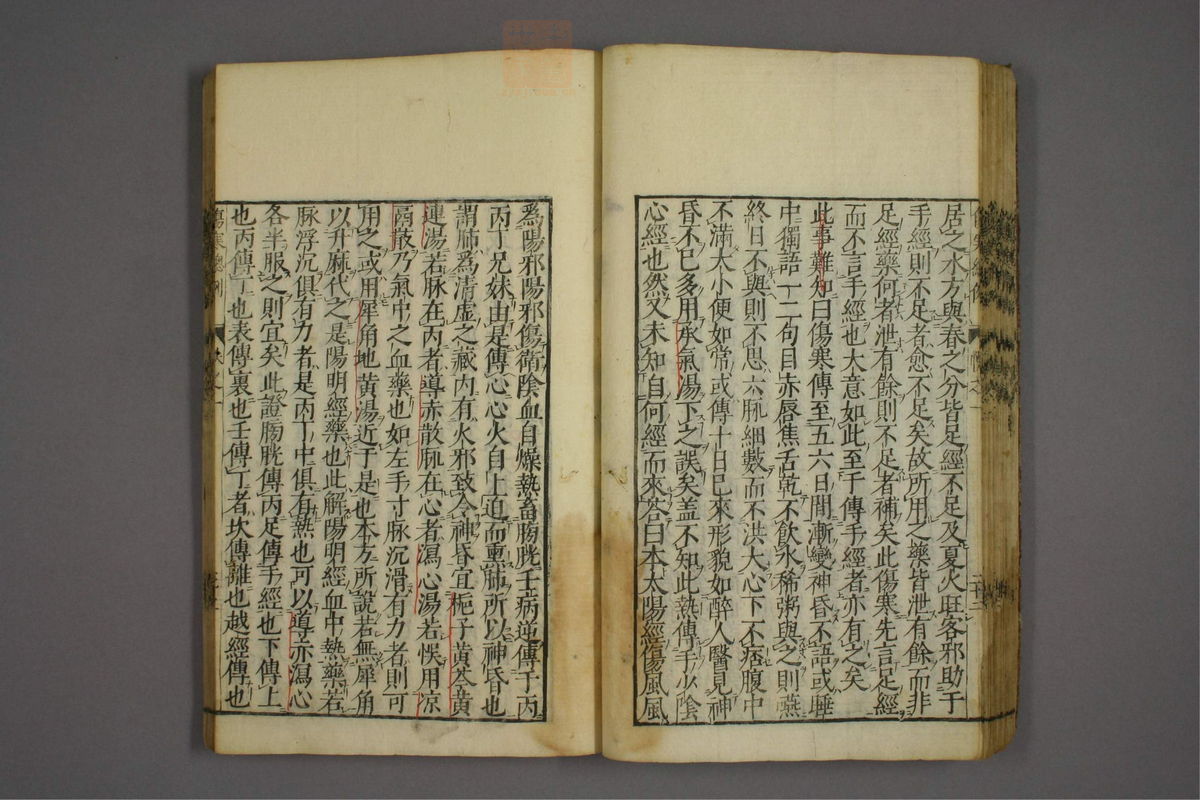 居之水方與春之分皆足經不足及夏火旺客邪助于
手經則不足者愈不足矣故所用之藥皆泄有餘而非
足經藥何者泄有餘則不足者補矣此傷寒先言足經
而不言手經也大意如此至于傳手經者亦有之矣
此事難知曰傷寒傳至五六日間漸變神昏不語或睡
中獨語一二句目赤唇焦舌乾不飲水稀粥與之則嚥
終日不與則不思六脉細數而不洪大心下不痞腹中
不滿大小便如常或傳十日已來形貌如醉人醫見神
昏不已多用承氣湯下之誤矣盖不知此熱傳手少陰
心經也然又未知自何經而來荅曰本太陽經傷風風
為陽邪陽邪傷衛陰血自燥熱畜膀胱壬病逆傳于丙
丙丁兄妹由是傳心心火自上迫而熏肺所以神昏也
謂肺為清虛之藏内有火邪致令神昏宜梔子黃芩黃
連湯若脉在丙者導赤散脉在心者瀉心湯若悞用凉
膈散乃氣中之血藥也如左手寸脉沉滑有力者則可
用之或用犀角地黃湯近于是也本方所說若無犀角
以升麻代之是陽明經藥也此解陽明經血中熱藥若
脉浮沉俱有力者是丙丁中俱有熱也可以導赤瀉心
各半服之則宜矣此證膀胱傳丙足傳手經也下傳上
也丙傳丁也表傳裏也壬傳丁者坎傳離也越經傳也
傷寒總例